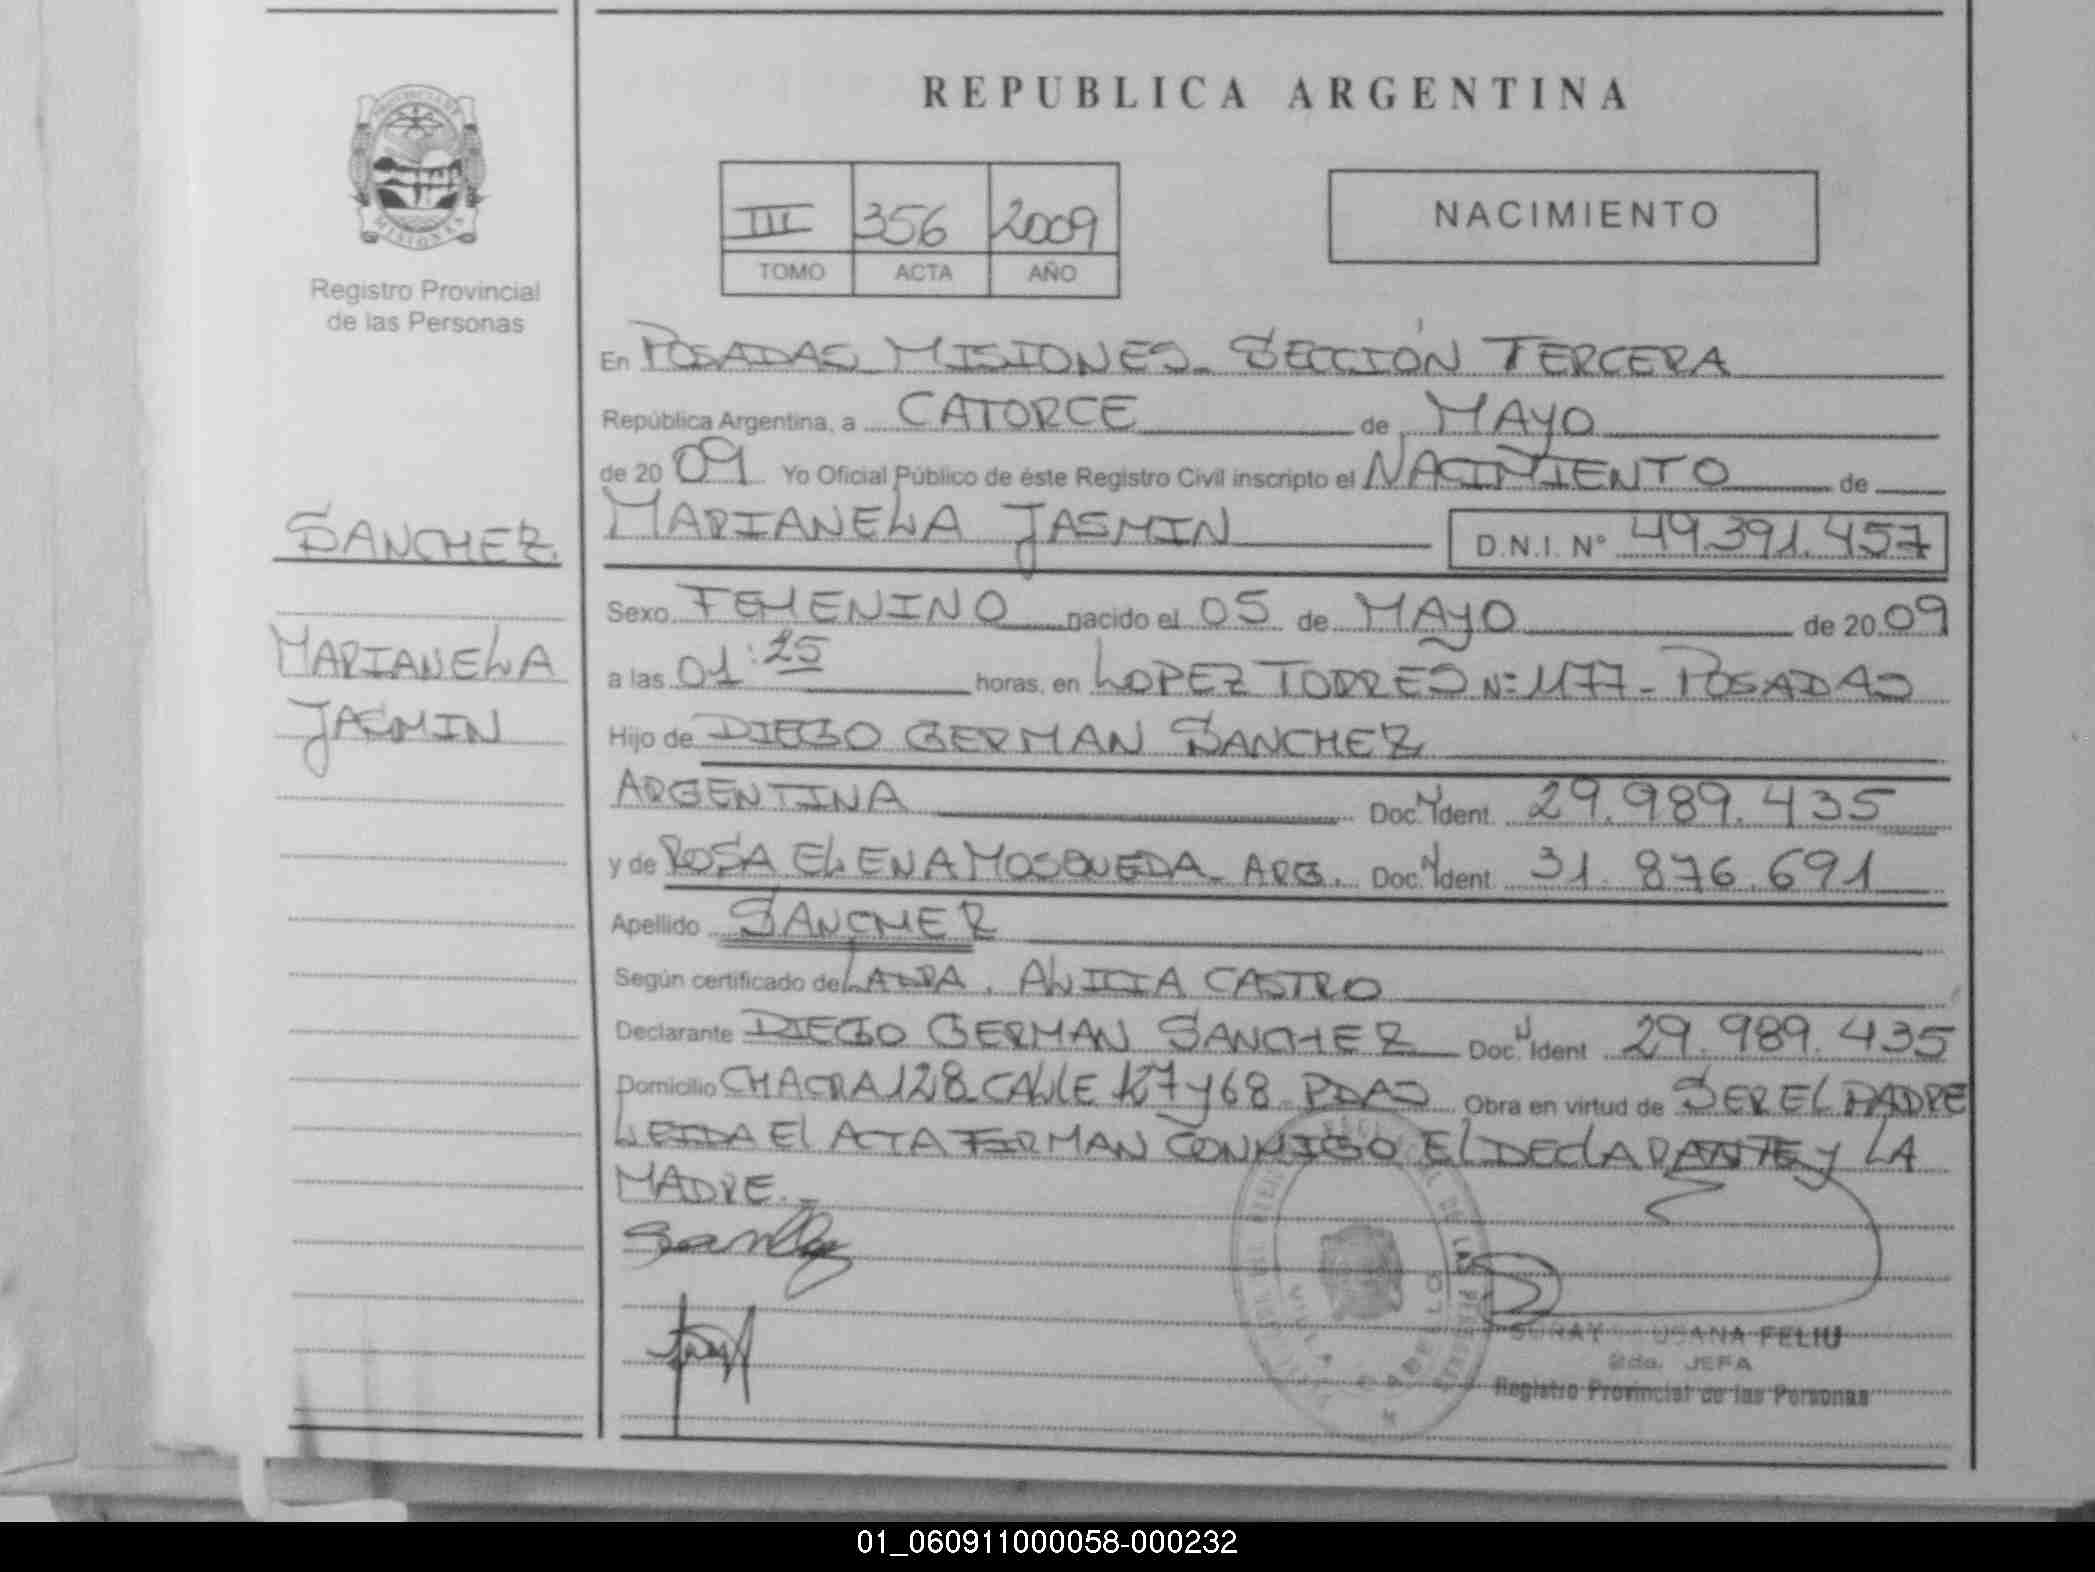 REPUBLICA ARGENTINA
III 356 2009
TOMO ACTA AÑO
NACIMIENTO
Registro Provincial
de las Personas
SANCHEZ
MARIANELA
JASMIN
En POSADAS MISIONES - SECCIÓN TERCERA
República Argentina, a CATORCE de MAYO
de 2009 Yo Oficial Público de éste Registro Civil inscripto el NACIMIENTO de
MARIANELA JASMIN D.N.I. Nº 49.391.457
Sexo FEMENINO nacido el 05 de MAYO de 2009
a las 01:25 horas, en LOPEZ TORRES Nº 1177 - POSADAS
Hijo de DIEGO GERMAN SANCHEZ
ARGENTINA Doc. N Ident. 29.989.435
y de ROSA ELENA MOSQUEDA - ARG. Doc. N Ident. 31.876.691
Apellido SANCHEZ
Según certificado de LA DRA. ALICIA CASTRO
Declarante DIEGO GERMAN SANCHEZ Doc. N Ident. 29.989.435
Domicilio CHACRA 128 CALLE 127 y 68 - PDAS Obra en virtud de SER EL PADRE
LEIDA El ACTA FIRMAN CONMIGO El DEClARANTE y LA
MADRE.-
USANA FELIU
JEFA
Registro Provincial de las Personas
01_060911000058-000232